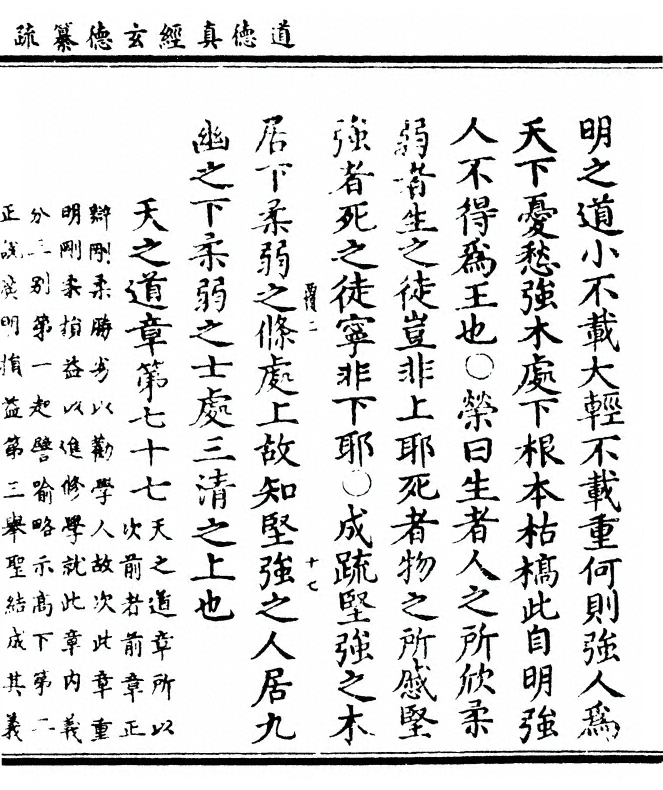 道德真經玄德纂疏
明之道小不載大輕不載重何則強人為
天下憂愁強木處下根本枯槁此自明強
人不得為王也○榮曰生者人之所欣柔
弱者生之徒豈非上耶死者物之所慼堅
強者死之徒寧非下耶○成疏堅強之木
居下柔弱之條處上故知堅強之人居九
幽之下柔弱之士處三清之上也
天之道章第七十七
天之道章所以
次前者前章正
辯剛柔勝劣以勸學人故次此章重
明剛柔損益以進修學就此章內義
分三別第一起譬喻略示高下第二
正說廣明損益第三舉聖結成其義
十七